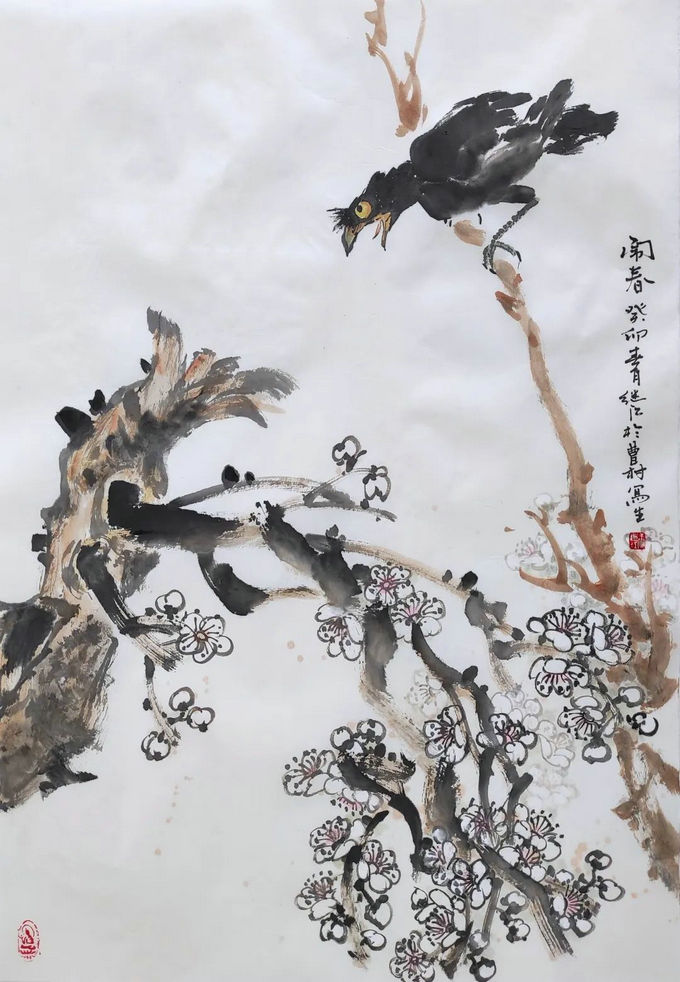 闹春癸卯春月继江於曹村写生